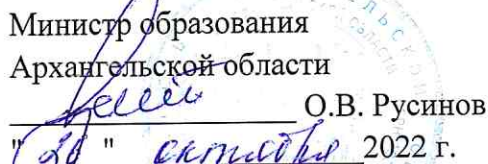 Министр образования
Архангельской области
О.В. Русинов
" 26 " октября 2022 г.